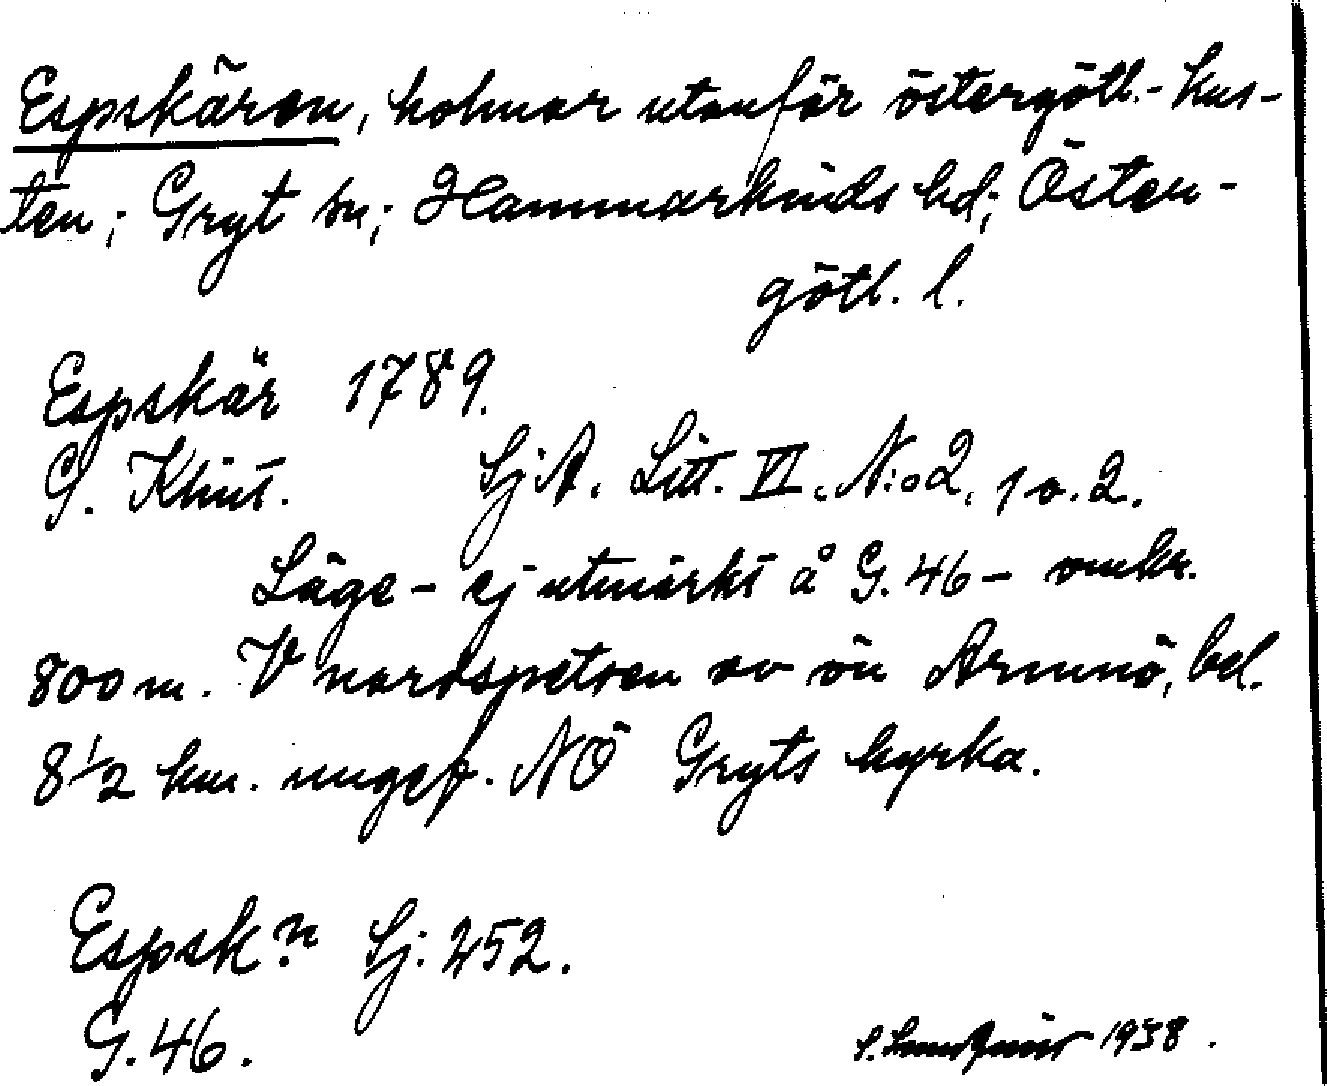 Espskären, holmar utanför östergötl.- kus-
ten; Gryt sn; Hammarkinds hd; Öster-
götl. l.
Espskär 1789.
G. Klint. Sj.A. Litt. VI. N:o 2. 1 o. 2.
Läge - ej utmärkt å G. 46 - omkr.
800 m. V nordspetsen av ön Armnö, bel.
8 1/2 km. ungef. NÖ Gryts kyrka.
Espsk:n Sj: 252.
G. 46.
1938.